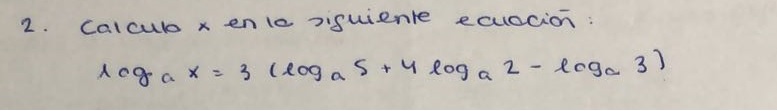 2. Calcula x en la siguiente ecuación:
log_a x = 3 (log_a 5 + 4 log_a 2 - log_a 3)